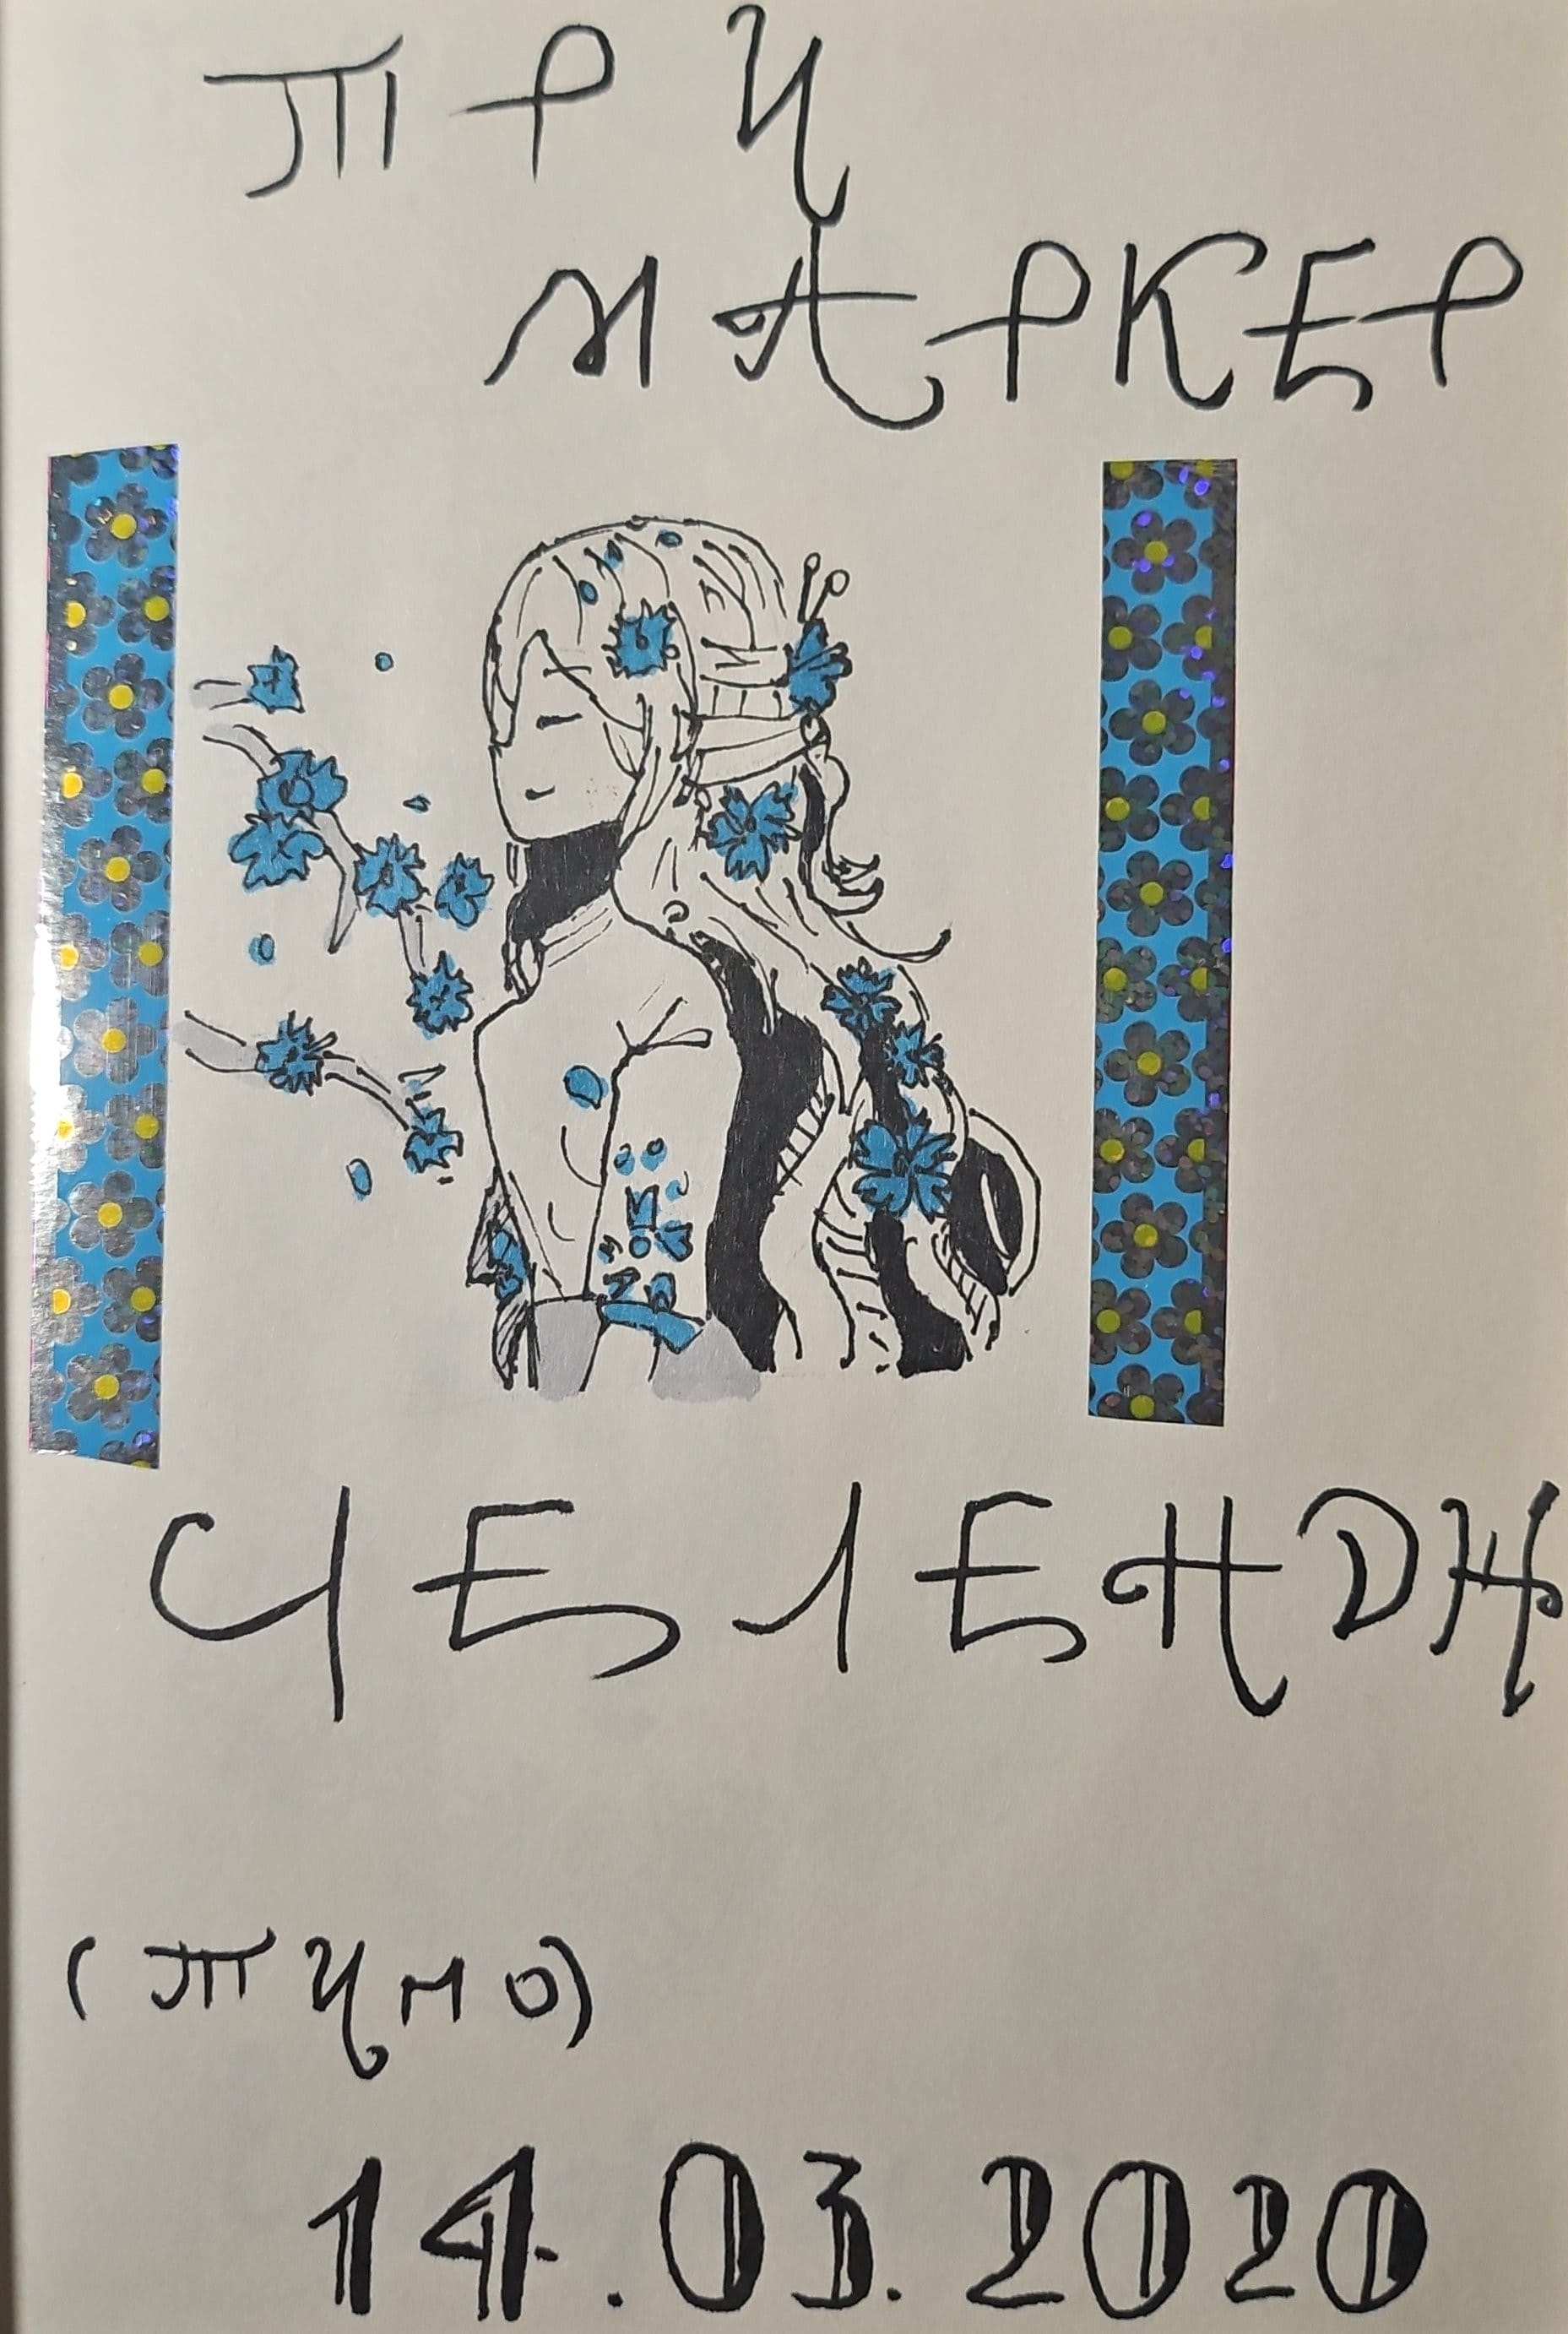 ТРИ
МАРКЕР
ЧЕЛЕНДЖ
(ТИПО)
14.03.2020